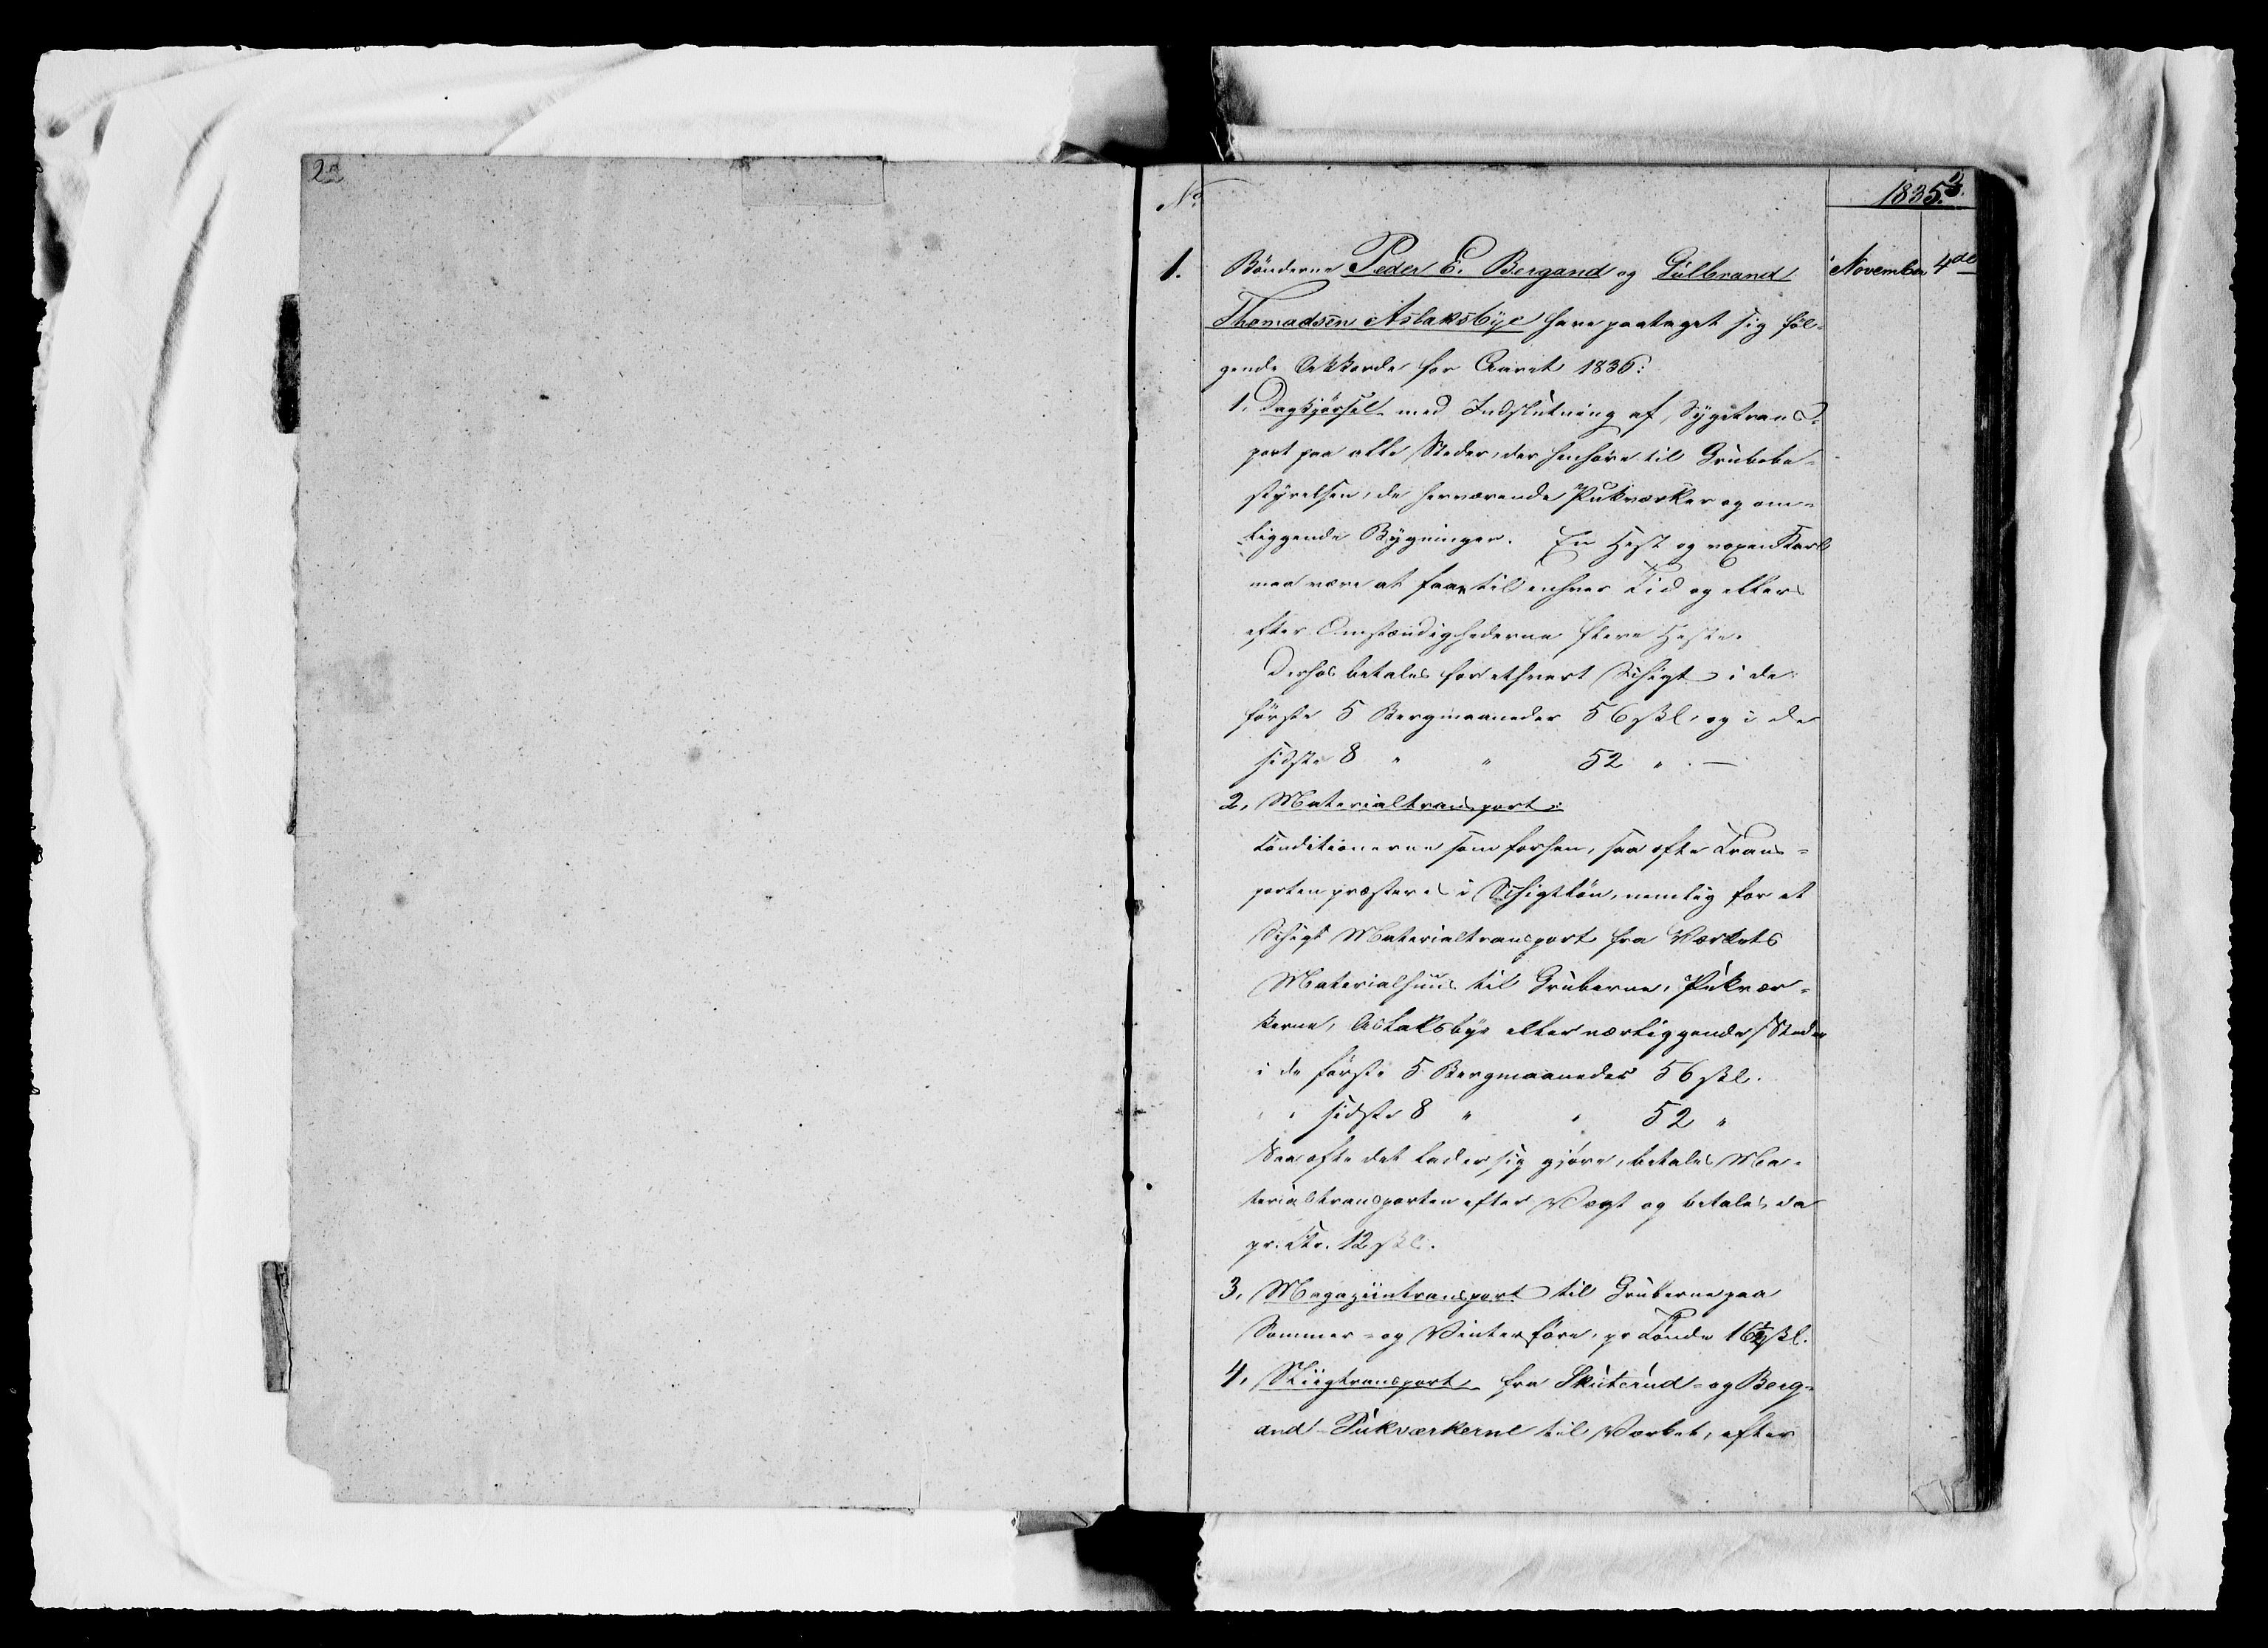 2a
No.
1835.
3.
1. Bönderne Peder E. Bergand og Gulbrand November 4de
Thomadsen Aslaksbye have paataget sig föl-
gende Akkorde for Aaret 1836:
1, Dagkjörsel med Indslutning af Sygetrans-
port paa alle Steder, der henhöre til Grubebe-
styrelsen, de herværende Pukværker og om-
liggende Bygninger. En Hest og voxen Karl
maa være at faae til enhver Tid og ellers
efter Omstændighederne flere Heste.
Derfor betales for ethvert Schigt i de
förste 5 Bergmaaneder 56 skl, og i de
sidste 8 " " 52 " —
2, Materialtransport:
Conditionerne som forhen, saa ofte Trans-
porten præsteres i Schigtlön, nemlig for et
Schigt Materialtransport fra Værkets
Materialhuus til Gruberne, Pukvær-
kerne, Aslaksbye eller nærliggende Steder
i de förste 5 Bergmaaneder 56 skl.
" " sidste 8 " " 52 "
Saa ofte det lader sig gjöre, betales Ma-
terialtransporten efter Vægt og betales da
pr. Ctr. 12 skl.
3, Magaziintransport til Gruberne paa
Sommer- og Vinterföre, pr Tönde 16½ skl.
4, Sliigtransport fra Skuterud- og Berg-
and-Pukværkerne til Værket, efter